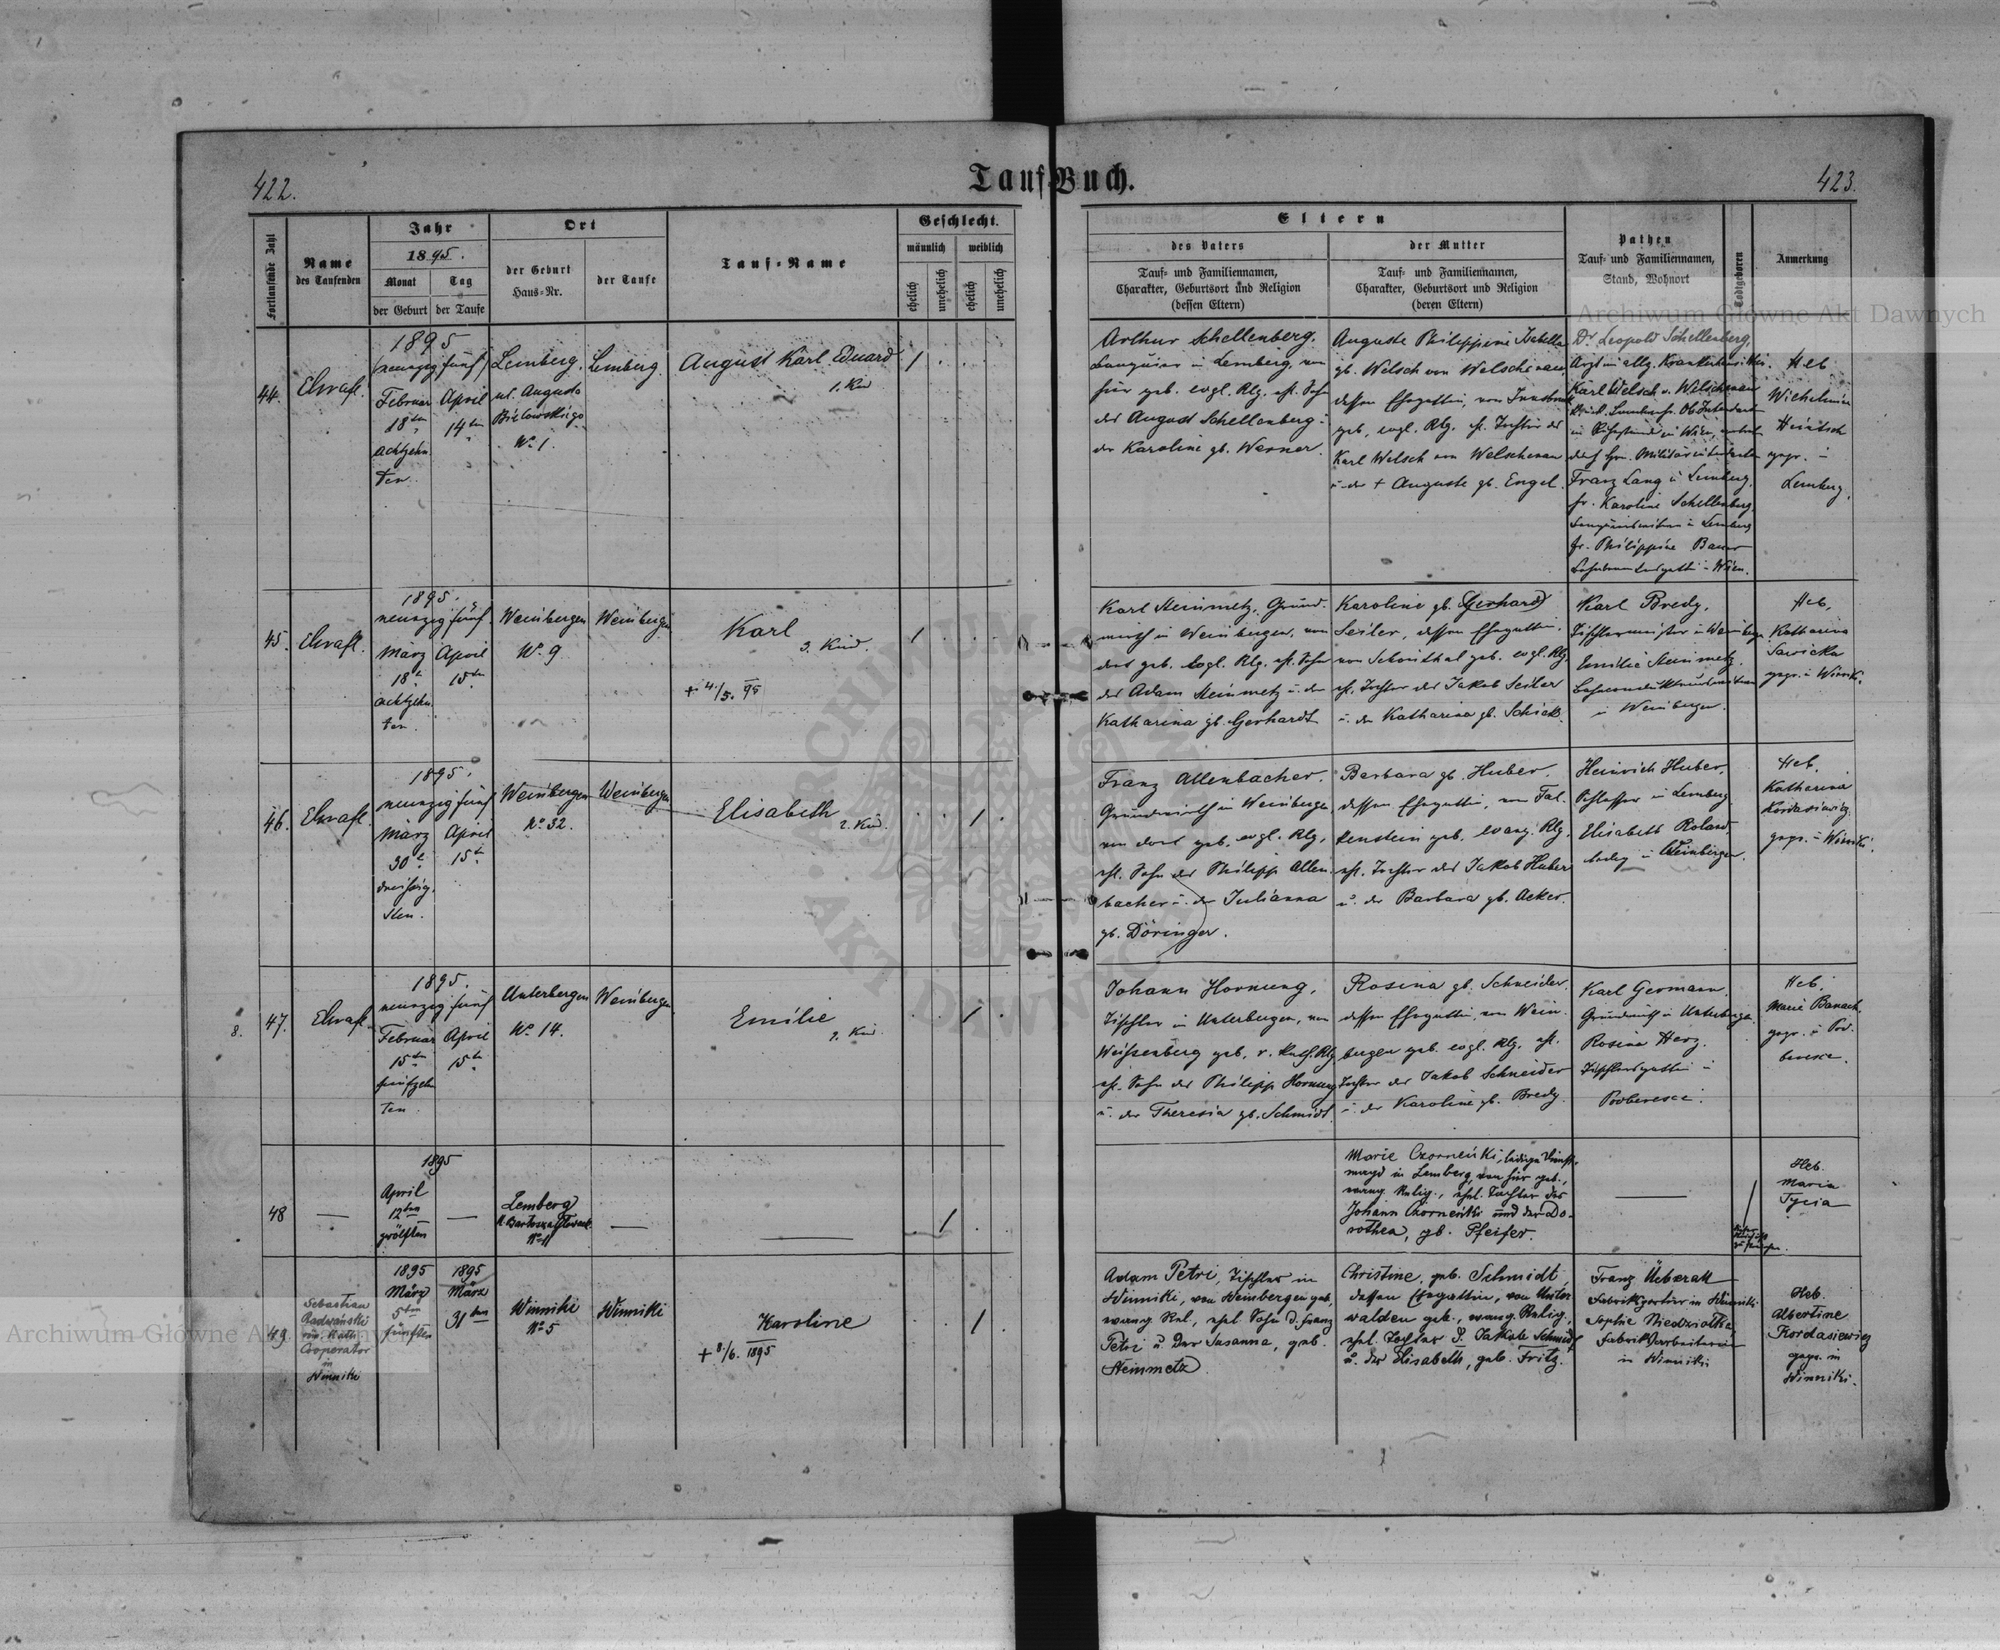 422.
Tauf-Buch.
423.
Fortlaufende Zahl
Name
des Taufenden
Jahr
1895.
Monat
Tag
der Geburt
der Taufe
Ort
der Geburt
Haus-Nr.
der Taufe
Tauf-Name
Geschlecht.
männlich
weiblich
ehelich
unehelich
ehelich
unehelich
Eltern
des Vaters
Tauf- und Familiennamen,
Charakter, Geburtsort und Religion
(dessen Eltern)
der Mutter
Tauf- und Familiennamen,
Charakter, Geburtsort und Religion
(deren Eltern)
Pathen
Tauf- und Familiennamen,
Stand, Wohnort
Todtgeboren
Anmerkung
44.
1895
(neunzig fünf)
Februar April
18ten 14ten
achtzehn
ten
Lemberg.
ul. Augusta
Bielowskiego
No 1.
Lemberg.
August Karl Eduard
1. Kind
1
Arthur Schellenberg,
Banquier in Lemberg, von
hier geb. evgl. Rlg. ehl. Sohn
des August Schellenberg u
der Karoline gb. Werner.
Auguste Philippine Isabella
gb. Welsch von Welschenau
dessen Ehegattin, von Innsbruck
geb. evgl. Rlg. ehl. Tochter des
Karl Welsch von Welschenau
u der + Auguste gb. Engel.
Dr Leopold Schellenberg,
Arzt im allg. Krankenhaus Wien.
Karl Welsch v. Welschenau
Franz Lang in Lemberg,
fr. Karoline Schellenberg
in Lemberg
fr. Philippine Bauer
Wien.
Heb.
Wilhelmine
Heintsch
gepr. in
Lemberg.
45.
1895.
neunzig fünf
März April
18t 15ten
achtzehn
ten.
Weinbergen
No. 9
Weinbergen
Karl
3. Kind.
+ 4/5. 95
1
Karl Steinmetz, Grund-
wirth in Weinbergen, von
dort geb. evgl. Rlg. ehl. Sohn
des Adam Steinmetz u. der
Katharina gb. Gerhardt
Karoline gb. (Gerhard)
Seiler, dessen Ehegattin.
von Schönthal geb. evgl. Rlg.
ehl. Tochter des Jakob Seiler
u. der Katharina gb. Schick.
Karl Bredy,
Tischlermeister in Weinbergen
Emilie Steinmetz
in Weinbergen.
Heb.
Katharina
Sawicka
gepr. in Winnik.
46.
1895.
neunzig fünf
März April
30t 15t
dreißig-
sten.
Weinbergen
No. 32.
Weinbergen
Elisabeth
2. Kind.
1
Franz Allenbacher,
Grundwirth in Weinbergen
von dort geb. evgl. Rlg.
ehl. Sohn des Philipp Allen-
bacher u. der Julianna
gb. Döringer.
Barbara gb. Huber,
dessen Ehegattin, von Fal-
kenstein geb. evang. Rlg.
ehl. Tochter des Jakob Huber
u. der Barbara gb. Acker.
Heinrich Huber,
Schlosser in Lemberg
Elisabeth Roland,
ledig in Weinbergen.
Heb.
Katharina
Kordasiewicz
gepr. in Winniki.
8.
47.
1895.
neunzig fünf
Februar April
15ten 15t
fünfzehn
ten
Unterbergen
No. 14.
Weinbergen
Emilie
2. Kind
1
Johann Hornung,
Tischler in Unterbergen, von
Weissenberg geb. r. kath. Rlg.
ehl. Sohn des Philipp Hornung
u. der Theresia gb. Schmidt.
Rosina gb. Schneider,
dessen Ehegattin, von Wein-
bergen geb. evgl. Rlg. ehl.
Tochter des Jakob Schneider
u. der Karoline gb. Bredy.
Karl Germann,
Grundwirth in Unterbergen
Rosina Herz,
Tischlersgattin in
Podberesce.
Heb.
Marie Banach
gepr. in Pod-
beresce.
48
1895
April
12ten
zwölften
Lemberg
No 11
1
Marie Czorneński, ledige Dienst-
magd in Lemberg, von hier geb.,
evang. Relig., ehel. Tochter des
Johann Czorneński und der Do-
rothea, gb. Pfeifer.
Heb.
Maria
Tycia
49.
Sebastian
Radwański
röm. kath.
Cooperator
in
Winniki
1895 1895
März März
5ten 31ten
fünften
Winniki
No 5
Winniki
Karoline
+ 8/6. 1895
1
Adam Petri, Tischler in
Winniki, von Weinbergen geb,
evang. Rel, ehel Sohn d. Franz
Petri u. der Susanna, geb.
Steinmetz
Christine, geb. Schmidt,
dessen Ehegattin, von Unter-
walden geb., evang. Relig.,
ehel. Tochter d. Jakob Schmidt
u. der Elisabeth, geb. Fritz.
Franz Ueberall
Fabrikportier in Winniki
Sophie Niedziołka
Fabriksarbeiterin
in Winniki
Heb.
Albertine
Kordasiewicz
gepr. in
Winniki.
Archiwum Główne Akt Dawnych
Archiwum Główne Akt Dawnych